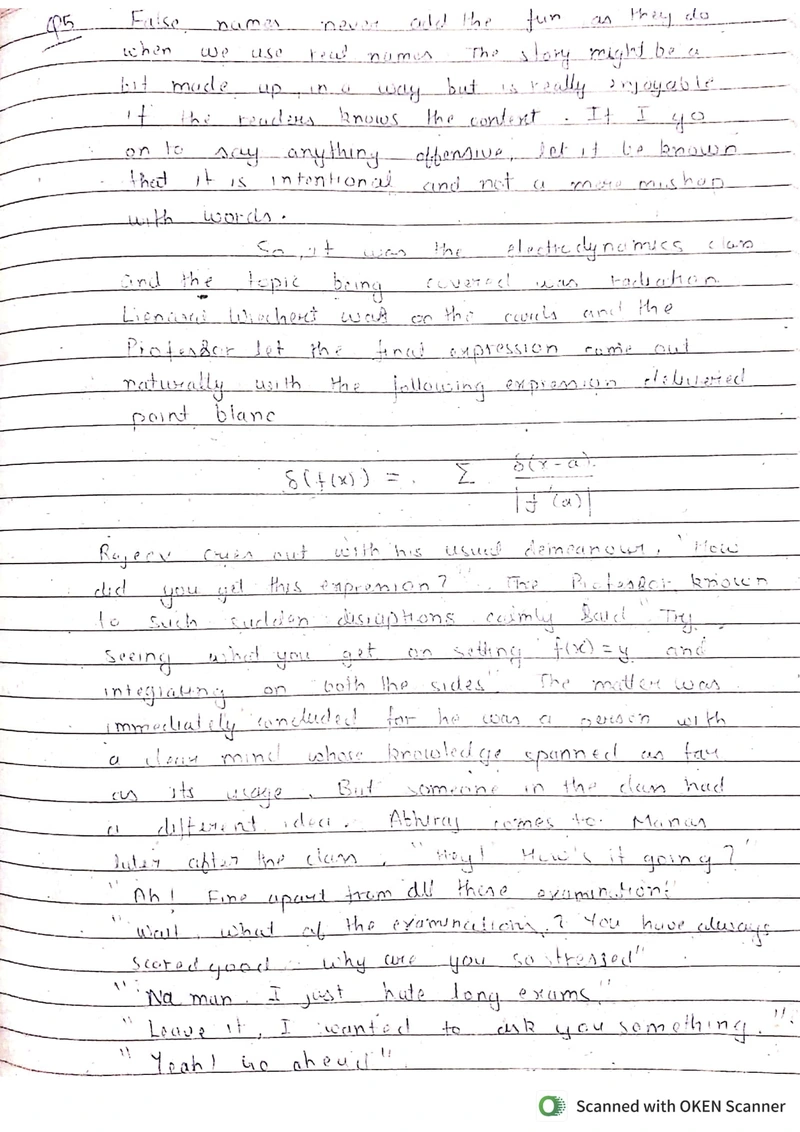 Q5 False names never add the fun as they do
when we use real names. The story might be a
bit made up in a way but is really enjoyable
if the readers knows the context. If I go
on to say anything offensive, let it be known
that it is intentional and not a mere mishap
with words.
So, it was the electrodynamics class
and the topic being covered was radiation
Lienard Wiechert was on the cards and the
Professor let the final expression come out
naturally with the following expression delivered
point blanc
δ(f(x)) = Σ δ(x-a) / |f'(a)|
Rajeev cries out with his usual demeanour, "How
did you get this expression?" The Professor known
to such sudden disruptions calmly said "Try
seeing what you get on setting f(x) = y and
integrating on both the sides". The matter was
immediately concluded for he was a person with
a clear mind whose knowledge spanned as far
as its usage. But someone in the class had
a different idea. Athiraj comes to Manas
later after the class, "Hey! How's it going?"
"Ah! Fine apart from all these examination!"
"Wait, what of the examinations? You have always
scored good why are you so stressed"
"Na man. I just hate long exams"
"Leave it, I wanted to ask you something."
"Yeah! Go ahead"
Scanned with OKEN Scanner